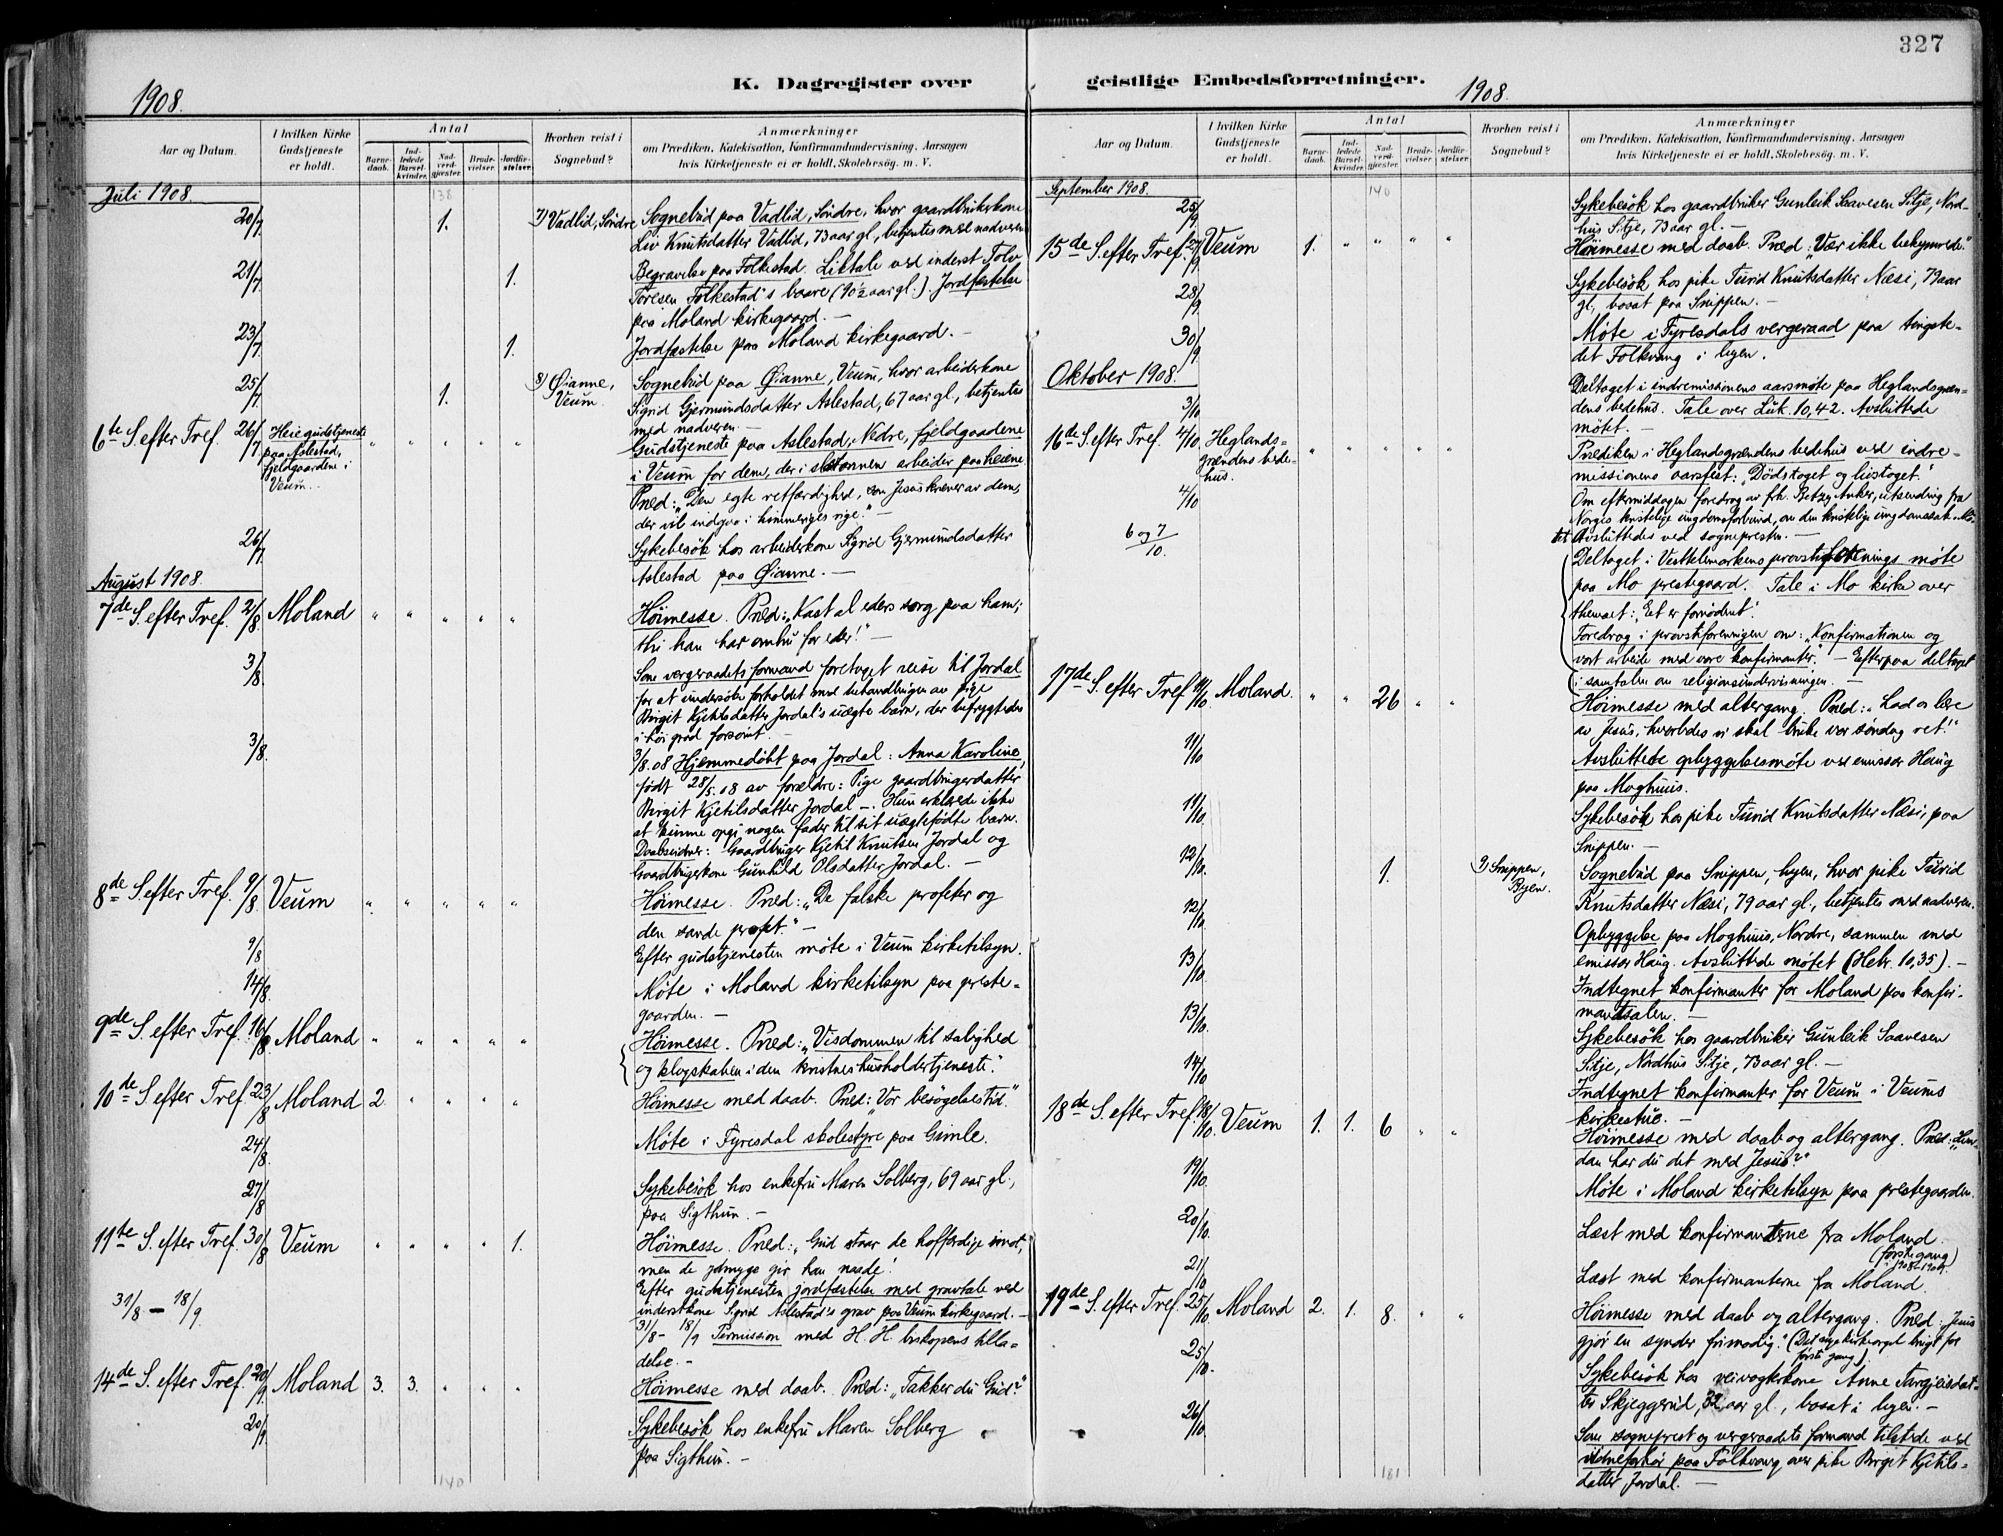 327
K. Dagregister over
geistlige Embedsforretninger.
1908.
Aar og Datum.
I hvilken Kirke Gudstjeneste er holdt.
Antal
Barnedaab.
Indledede Barselkvinder.
Nadverdgjæster.
Brudevielser.
Jordfæstelser.
Hvorhen reist i Sognebud?
Anmærkninger
om Prædiken, Katekisation, Konfirmandundervisning, Aarsagen
hvis Kirketjeneste ei er holdt, Skolebesög. m. V.
Juli 1908
138
20/7 1. 7) Vadlid, Søndre Sognebud paa Vadlid, Søndre, hvor gaardbrukerkone
Liv Knutsdatter Vadlid, 73 aar gl., betjentes med nadveren
21/7 1. Begravelse paa Folkestad. Liktale ved inderst Tolv
Toresen Folkestad's baare (90½ aar gl.) Jordfæstelse
paa Moland kirkegaard. —
23/7 1. Jordfæstelse paa Moland kirkegaard. —
25/7 1. 8) Øianne, Veum. Sognebud paa Øianne, Veum, hvor arbeiderkone
Sigrid Gjermundsdatter Aslestad, 67 aar gl., betjentes
med nadveren. —
6te S. efter Tref. 26/7 Heiegudstjeneste paa Aslestad, fjeldgaardene i Veum. " " " " " Gudstjeneste paa Aslestad, Nedre, fjeldgaardene
i Veum for dem, der i slaatonnen arbeider paa heiene
Præd: "Den egte retfærdighed, som Jesus kræver av dem,
der vil indgaa i himmeriges rige." —
26/7 Sykebesøk hos arbeiderkone Sigrid Gjermundsdatter
Aslestad paa Øianne. —
August 1908.
7de S. efter Tref. 2/8 Moland " " " " " Høimesse. Præd: "Kast al eders sorg paa ham;
thi han har omhu for eder!" —
3/8. Som vergeraadets formand foretaget reise til Jordal
for at undersøke forholdet med behandlingen av pige
Birgit Kjetilsdatter Jordal's uægte barn, der befrygtedes
i høi grad forsømt. —
3/8. 3/8.08 Hjemmedøbt paa Jordal: Anna Karoline,
født 28/5.08 av forældre: Pige gaardbrugerdatter
Birgit Kjetilsdatter Jordal —. Hun erklærede ikke
at kunne opgi nogen fader til sit uægtefødte barn.
Daabsvidner: Gaardbruger Kjetil Knutsen Jordal og
Gaardbrugerkone Gunhild Olsdatter Jordal. —
8de S. efter Tref. 9/8 Veum " " " " " Høimesse. Præd: "De falske profeter og
den sande profet." —
9/8 Efter gudstjenesten møte i Veum kirketilsyn.
14/8. Møte i Moland kirketilsyn paa preste-
gaarden. —
9de S. efter Tref. 16/8 Moland " " " " " Høimesse. Præd: "Visdommen til salighed
og klogskaben i den kristnes husholdertjeneste."
10de S. efter Tref. 23/8 Moland 2. " " " " Høimesse med daab. Præd: "Vor besøgelsestid."
24/8. Møte i Fyresdal skolestyre paa Gimle.
27/8 Sykebesøk hos enkefru Maren Solberg, 69 aar gl.,
paa Sigthun. —
11te S. efter Tref. 30/8 Veum " " " " 1. Høimesse. Præd: "Gud staar de hoffærdige imot,
men de ydmyge gir han naade!
Efter gudstjenesten jordfæstelse med gravtale ved
inderstkone Sigrid Aslestad's grav paa Veum kirkegaard. —
31/8 – 18/9. 31/8 – 18/9 Permission med H. H. biskopens tilla-
delse. —
14de S. efter Tref. 20/9 Moland 3. 3. " " " Høimesse med daab. Præd: "Takker du Gud?"
20/9. Sykebesøk hos enkefru Maren Solberg
paa Sigthun. —
140
1908.
Aar og Datum.
I hvilken Kirke Gudstjeneste er holdt.
Antal
Barnedaab.
Indledede Barselkvinder.
Nadverdgjæster.
Brudevielser.
Jordfæstelser.
Hvorhen reist i Sognebud?
Anmærkninger
om Prædiken, Katekisation, Konfirmandundervisning, Aarsagen
hvis Kirketjeneste ei er holdt, Skolebesög. m. V.
September 1908.
140
25/9 Sykebesøk hos gaardbruker Gunleik Saavesen Sitje, Nord-
hus Sitje, 73 aar gl. —
15de S. efter Tref. 27/9 Veum 1. " " " " Høimesse med daab. Præd: "Vær ikke bekymrede."
28/9. Sykebesøk hos pike Turid Knutsdatter Næsi, 79 aar
gl., bosat paa Snippen. —
30/9 Møte i Fyresdals vergeraad paa tingste-
det Folkvang i byen.
Oktober 1908.
3/10 Deltaget i indremissionens aarsmøte paa Heglandsgræn-
dens bedehus. Tale over Luk. 10,42. Avsluttede
møtet. —
16de S. efter Tref. 4/10 Heglands- grændens bede- hus. " " " " " Prædiken i Heglandsgrændens bedehus ved indre-
missionens aarsfest: "Dødstoget og livstoget."
4/10 Om eftermiddagen foredrag av frk. Betzy Anker, utsending fra
Norges kristelige ungdomsforbund, om den kristelige ungdomssak. Mø-
tet avsluttedes ved sognepresten. —
6 og 7/10. Deltaget i Vesttelemarkens provstiforenings møte
paa Mo prestegaard. Tale i Mo kirke over
themaet: "Et er fornødent".
Foredrag i provstiforeningen om: "Konfirmationen og
vort arbeide med vore konfirmanter." — Efterpaa deltaget
i samtalen om religionsundervisningen. —
17de S. efter Tref. 11/10 Moland. " " 26 " " Høimesse med altergang. Præd: "Lad os lære
av Jesus, hvorledes vi skal bruke vor søndag ret!"
11/10 Avsluttede opbyggelsesmøte ved emissær Haug
paa Moghuus.
11/10. Sykebesøk hos pike Turid Knutsdatter Næsi, paa
Snippen. —
12/10. 1. 9) Snippen, Byen. Sognebud paa Snippen, byen, hvor pike Turid
Knutsdatter Næsi, 79 aar gl., betjentes med nadveren.
12/10. Opbyggelse paa Moghuus, Nordre, sammen med
emissær Haug. Avsluttede møtet (Hebr. 10,35). —
13/10. Indtegnet konfirmanter for Moland paa konfir-
mantsalen. —
13/10. Sykebesøk hos gaardbruker Gunleik Saavesen
Sitje, Nordhus Sitje, 73 aar gl. —
14/10 Indtegnet konfirmanter for Veum i Veums
kirkestue. —
18de S. efter Tref. 18/10. Veum 1. 1. 6 " " Høimesse med daab og altergang. Præd: "Hvor-
dan har du det med Jesus?"
19/10. Møte i Moland kirketilsyn paa prestegaarden.
20/10. Læst med konfirmanterne fra Moland.
(første gang 1908–1909).
21/10 Læst med konfirmanterne fra Moland.
19de S. efter Tref. 25/10. Moland 2. 1. 8. " " Høimesse med daab og altergang. Præd: Jesus
gjør en synder frimodig." (Det nye kirkeorgel brugt for
første gang)
25/10. Sykebesøk hos veivogterkone Anne Targjeisdat-
ter Skjeggerud, 32 aar gl., bosat i byen. —
26/10. Som sogneprest og vergeraadets formand tilstede ved
vidneforhør paa Folkvang over pike Birgit Kjetils-
datter Jordal. —
181